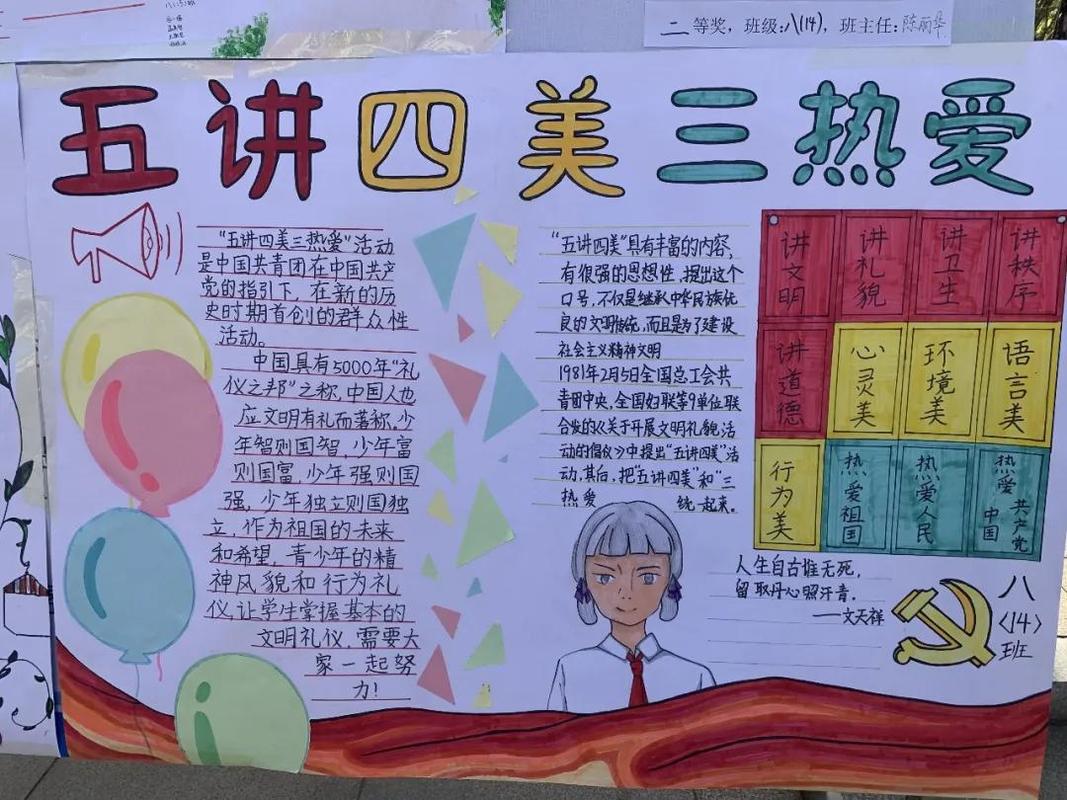 二等奖，班级:八(14)，班主任:陈丽华
五讲四美三热爱
“五讲四美三热爱”活动
是中国共青团在中国共产
党的指引下，在新的历
史时期首创的群众性
活动。
中国具有5000年“礼
仪之邦”之称，中国人也
应文明有礼而著称，少
年智则国智，少年富
则国富，少年强则国
强，少年独立则国独
立，作为祖国的未来
和希望，青少年的精
神风貌和行为礼
仪，让学生掌握基本的
文明礼仪，需要大
家一起努
力！
“五讲四美”具有丰富的内容，
有很强的思想性，提出这个
口号，不仅是继承中华民族优
良的文明传统，而且是为了建设
社会主义精神文明
1981年2月5日全国总工会共
青团中央，全国妇联等9单位联
合发的《关于开展文明礼貌活
动的倡仪》中提出“五讲四美”活
动，其后，把“五讲四美”和“三
热爱 统一起来。
讲文明
讲礼貌
讲卫生
讲秩序
讲道德
心灵美
环境美
语言美
行为美
热爱祖国
热爱人民
热爱中国共产党
人生自古谁无死，
留取丹心照汗青。
——文天祥
八
〈14〉
班